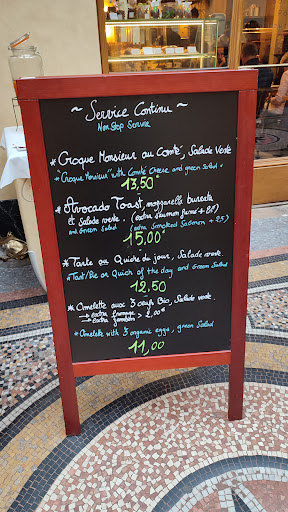 ~ Service Continu ~
Non Stop Service
* Croque Monsieur au Comté, Salade verte
"Croque Monsieur" with Comté cheese and green salad
13,50
* Avocado Toast, mozzarella burrata
et Salade verte. (extra saumon fumé + 5€)
and Green Salad (extra Smoked Salmon + 5)
15,00
* Tarte ou Quiche du jour, Salade verte
* Tart/Pie or Quich of the day and Green Salad
12.50
* Omelette avec 3 oeufs Bio, Salade verte.
→ extra fromage > 2,00€
→ extra jambon
* Omelette with 3 organic eggs, green Salad
11,00